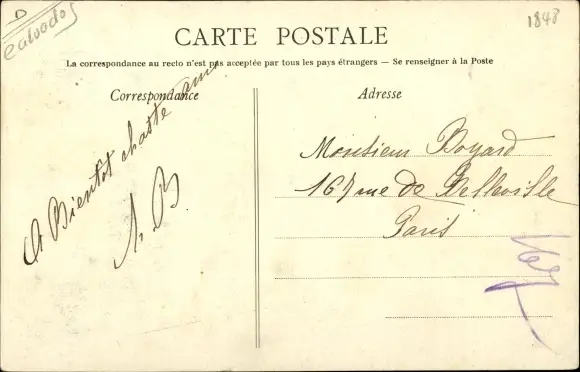 D
Calvados
1848
CARTE POSTALE
La correspondance au recto n'est pas acceptée par tous les pays étrangers — Se renseigner à la Poste
Correspondance
Adresse
A Bientot chaste ami
A, B
Monsieur Boyard
167 rue de Belleville
Paris
167